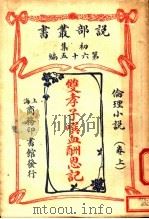 說部叢書
初集
第六十五編
倫理小說
（卷上）
雙孝子噀血酬恩記
上海
商務印書館發行